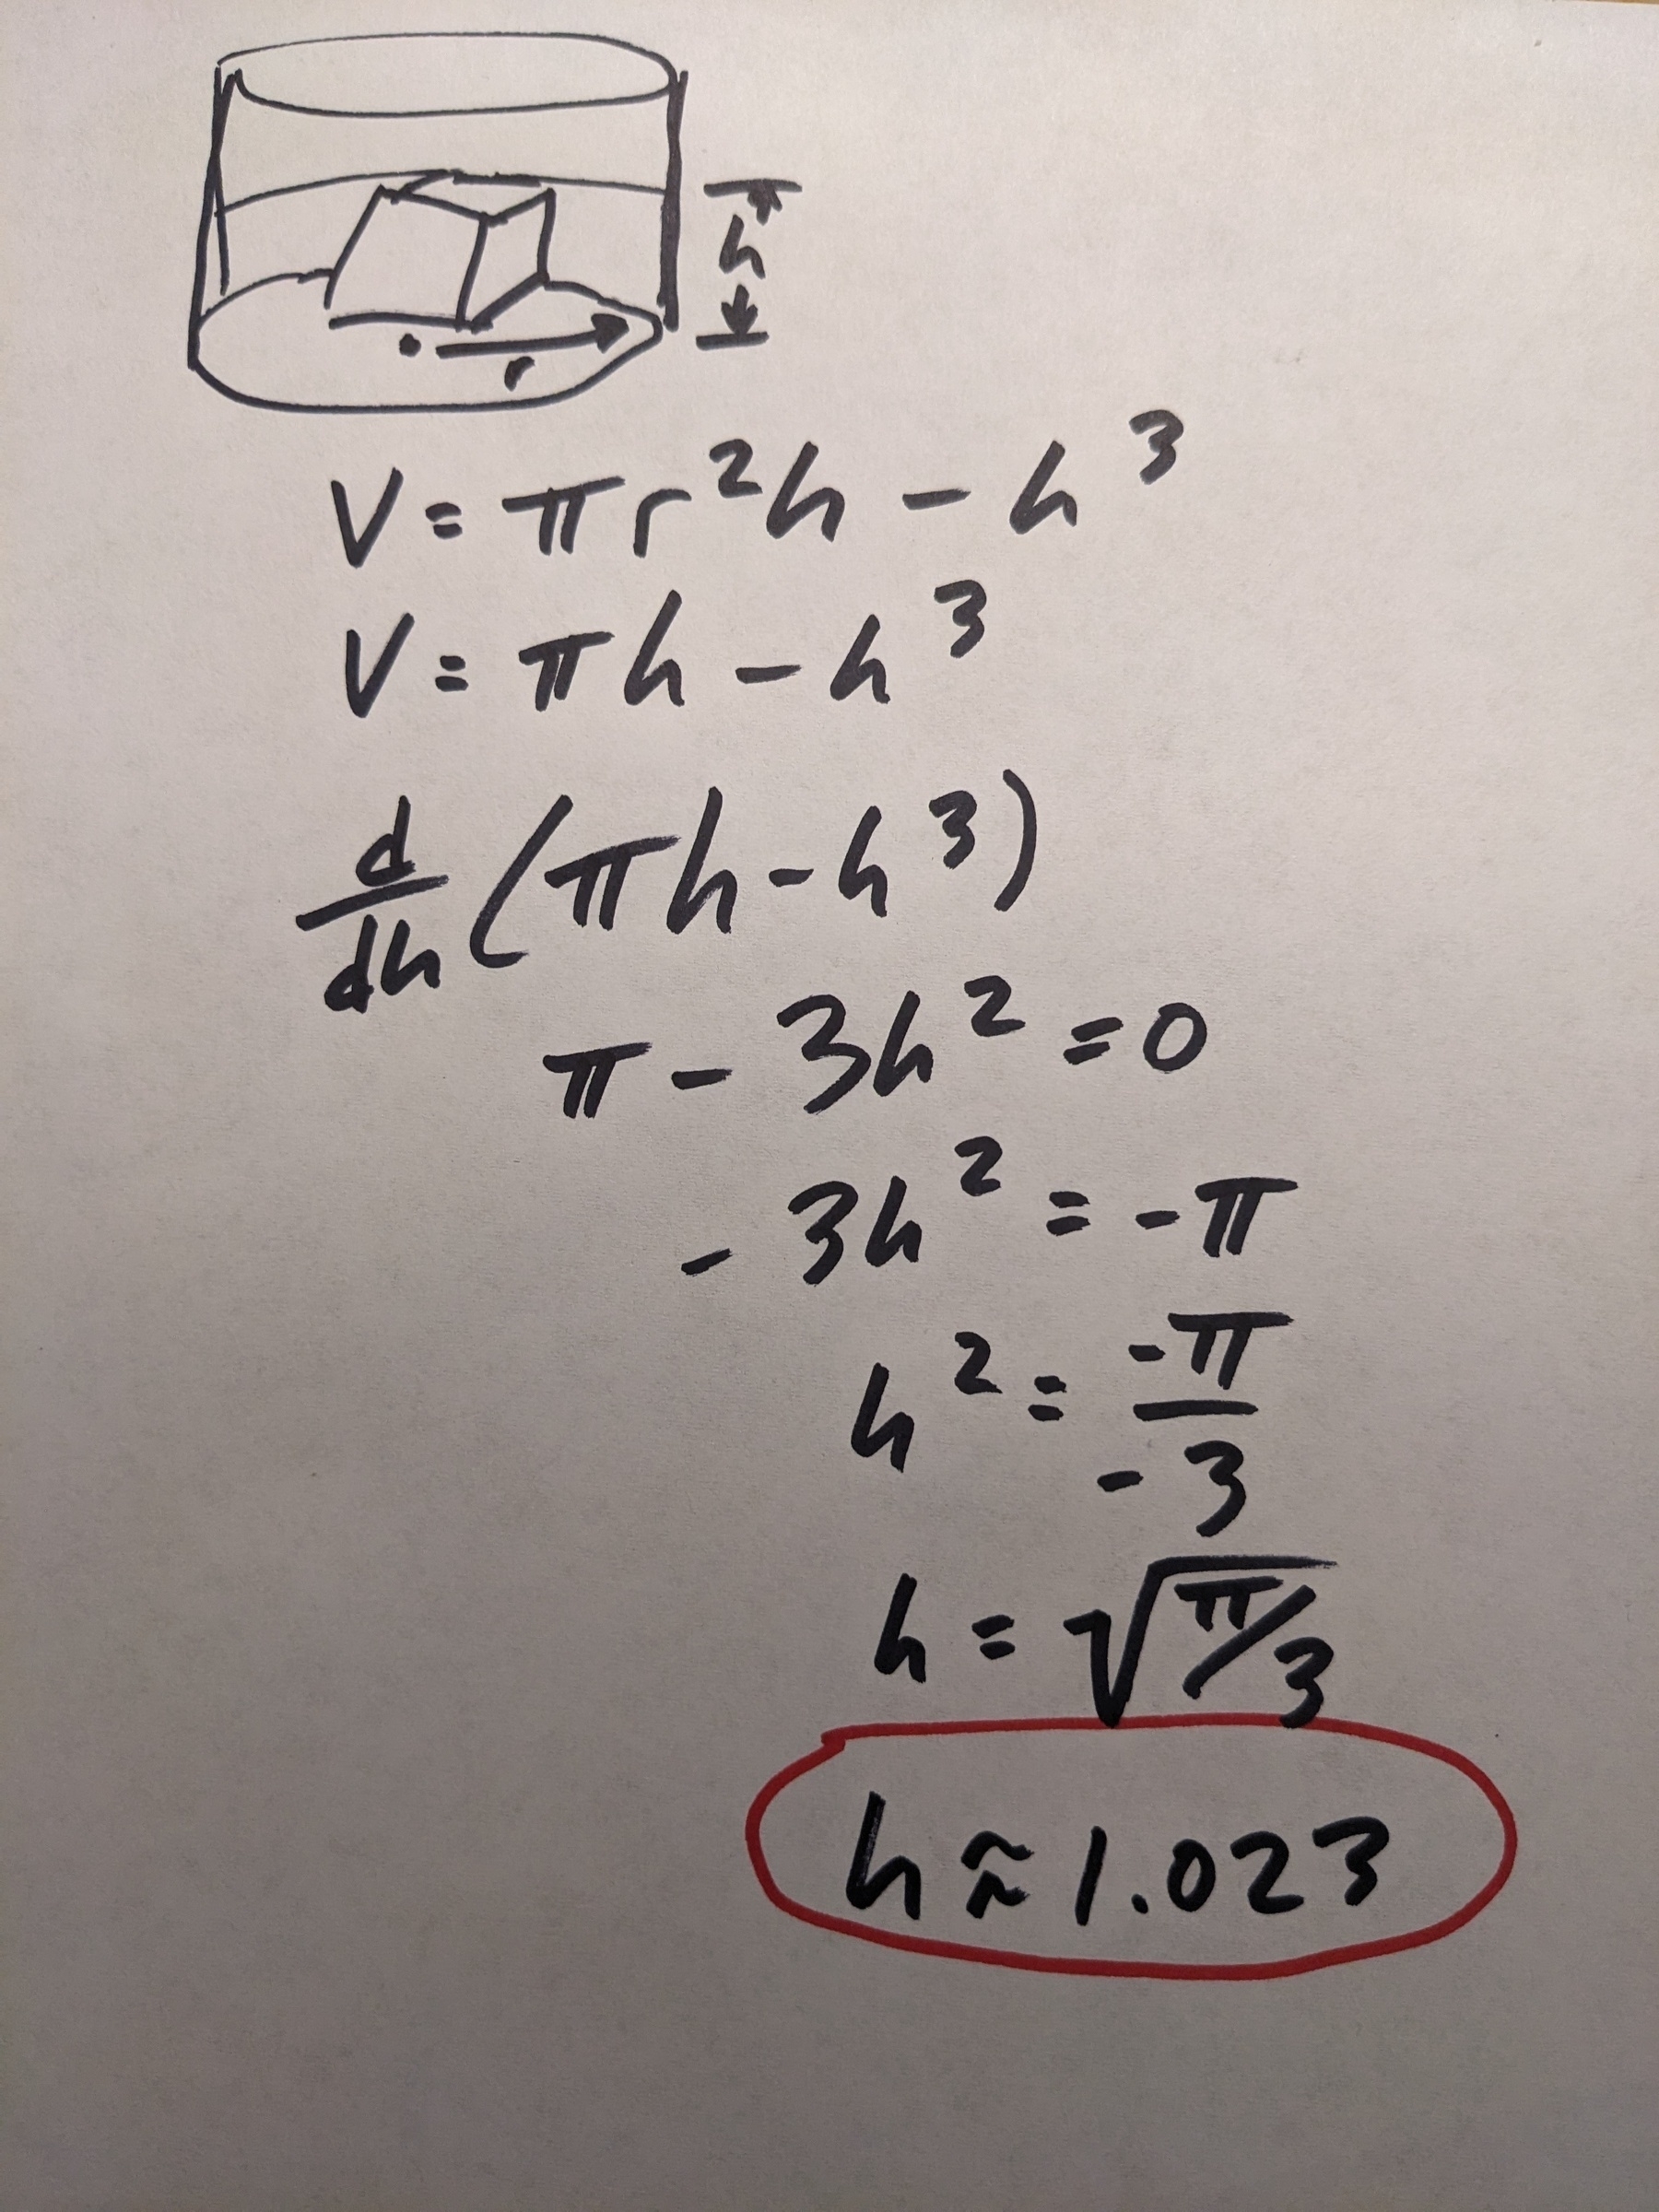 h
r
V = πr²h - h³
V = πh - h³
d/dh (πh - h³)
π - 3h² = 0
- 3h² = -π
h² = -π/-3
h = √(π/3)
h ≈ 1.023